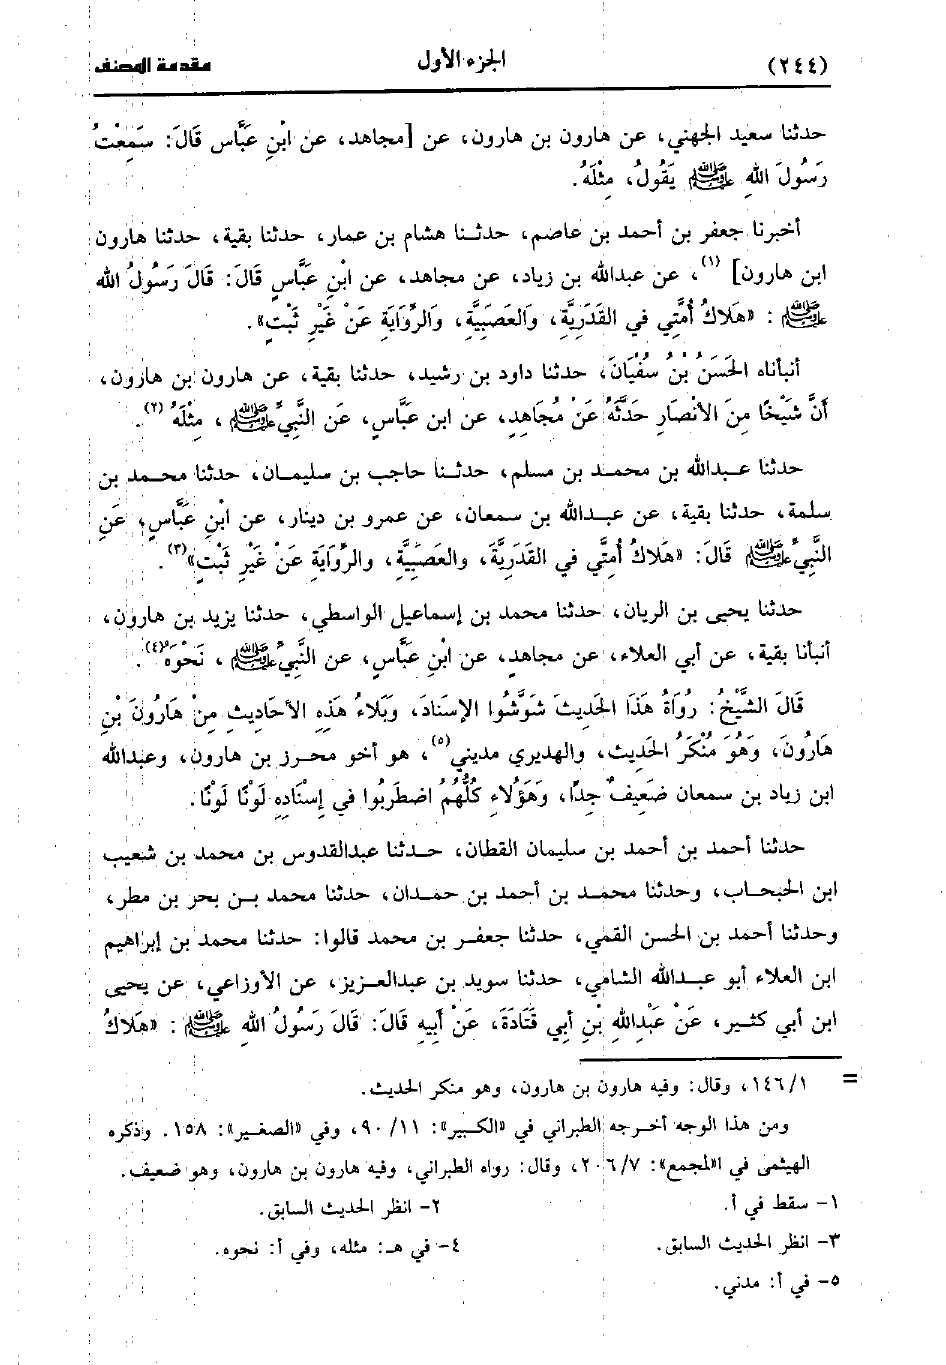 (٢٤٤) الجزء الأول مقدمة المصنف
حدثنا سعيد الجهني، عن هارون بن هارون، عن [مجاهد، عن ابْنِ عَبَّاس قَالَ: سَمِعْتُ
رَسُولَ اللهِ ﷺ يَقُولُ، مِثْلَهُ.
أخبرنا جعفر بن أحمد بن عاصم، حدثنا هشام بن عمار، حدثنا بقية، حدثنا هارون
ابن هارون] (١)، عن عبدالله بن زياد، عن مجاهد، عن ابْنِ عَبَّاسٍ قَالَ: قَالَ رَسُولُ الله
ﷺ : «هَلَاكُ أُمَّتِي في القَدَرِيَّةِ، وَالعَصَبِيَّةِ، وَالرِّوَايَةِ عَنْ غَيْرِ ثَبْتٍ».
أنبأناه الحَسَنُ بْنُ سُفْيَانَ، حدثنا داود بن رشيد، حدثنا بقية، عن هارون بن هارون،
أَنَّ شَيْخًا مِنَ الأَنْصَارِ حَدَّثَهُ عَنْ مُجَاهِدٍ، عن ابن عَبَّاسٍ، عَن النَّبِيِّ ﷺ ، مِثْلَهُ (٢).
حدثنا عبدالله بن محمد بن مسلم، حدثنا حاجب بن سليمان، حدثنا محمد بن
سلمة، حدثنا بقية، عن عبدالله بن سمعان، عن عمرو بن دينار، عن ابْنِ عَبَّاسٍ، عَنِ
النَّبِيِّ ﷺ قَالَ: «هَلَاكُ أُمَّتِي في القَدَرِيَّةِ، والعَصَبِيَّةِ، والرِّوَايَةِ عَنْ غَيْرِ ثَبْتٍ»(٣).
حدثنا يحيى بن الريان، حدثنا محمد بن إسماعيل الواسطي، حدثنا يزيد بن هارون،
أنبأنا بقية، عن أبي العلاء، عن مجاهد، عن ابْنِ عَبَّاسٍ، عن النَّبِيِّ ﷺ ، نَحْوَهُ(٤).
قَالَ الشَّيْخُ: رُوَاةُ هَذَا الحَدِيثِ شَوَّشُوا الإِسْنَادَ، وَبَلَاءُ هَذِهِ الأَحَادِيثِ مِنْ هَارُونَ بْنِ
هَارُونَ، وَهُوَ مُنْكَرُ الحَدِيثِ، والهديري مديني(٥)، هو أخو محرز بن هارون، وعبدالله
ابن زياد بن سمعان ضَعِيفٌ جِدًّا، وَهَؤُلَاءِ كُلُّهُمْ اضطَرِبُوا في إِسْنَادِهِ لَوْنًا لَوْنًا.
حدثنا أحمد بن أحمد بن سليمان القطان، حدثنا عبدالقدوس بن محمد بن شعيب
ابن الحبحاب، وحدثنا محمد بن أحمد بن حمدان، حدثنا محمد بن بحر بن مطر،
وحدثنا أحمد بن الحسن القمي، حدثنا جعفر بن محمد قالوا: حدثنا محمد بن إبراهيم
ابن العلاء أبو عبدالله الشامي، حدثنا سويد بن عبدالعزيز، عن الأوزاعي، عن يحيى
ابن أبي كثير، عَنْ عَبْدِاللهِ بْنِ أبِي قَتَادَةَ، عَنْ أَبِيهِ قَالَ: قَالَ رَسُولُ اللهِ ﷺ : «هَلَاكُ
= ١٤٦/١، وقال: وفيه هارون بن هارون، وهو منكر الحديث.
ومن هذا الوجه أخرجه الطبراني في «الكبير»: ٩٠/١١، وفي «الصغير»: ١٥٨. وذكره
الهيثمى في «المجمع»: ٢٠٦/٧، وقال: رواه الطبراني، وفيه هارون بن هارون، وهو ضعيف.
١- سقط في أ. ٢- انظر الحديث السابق.
٣- انظر الحديث السابق. ٤- في هـ: مثله، وفي أ: نحوه.
٥- في أ: مدني.